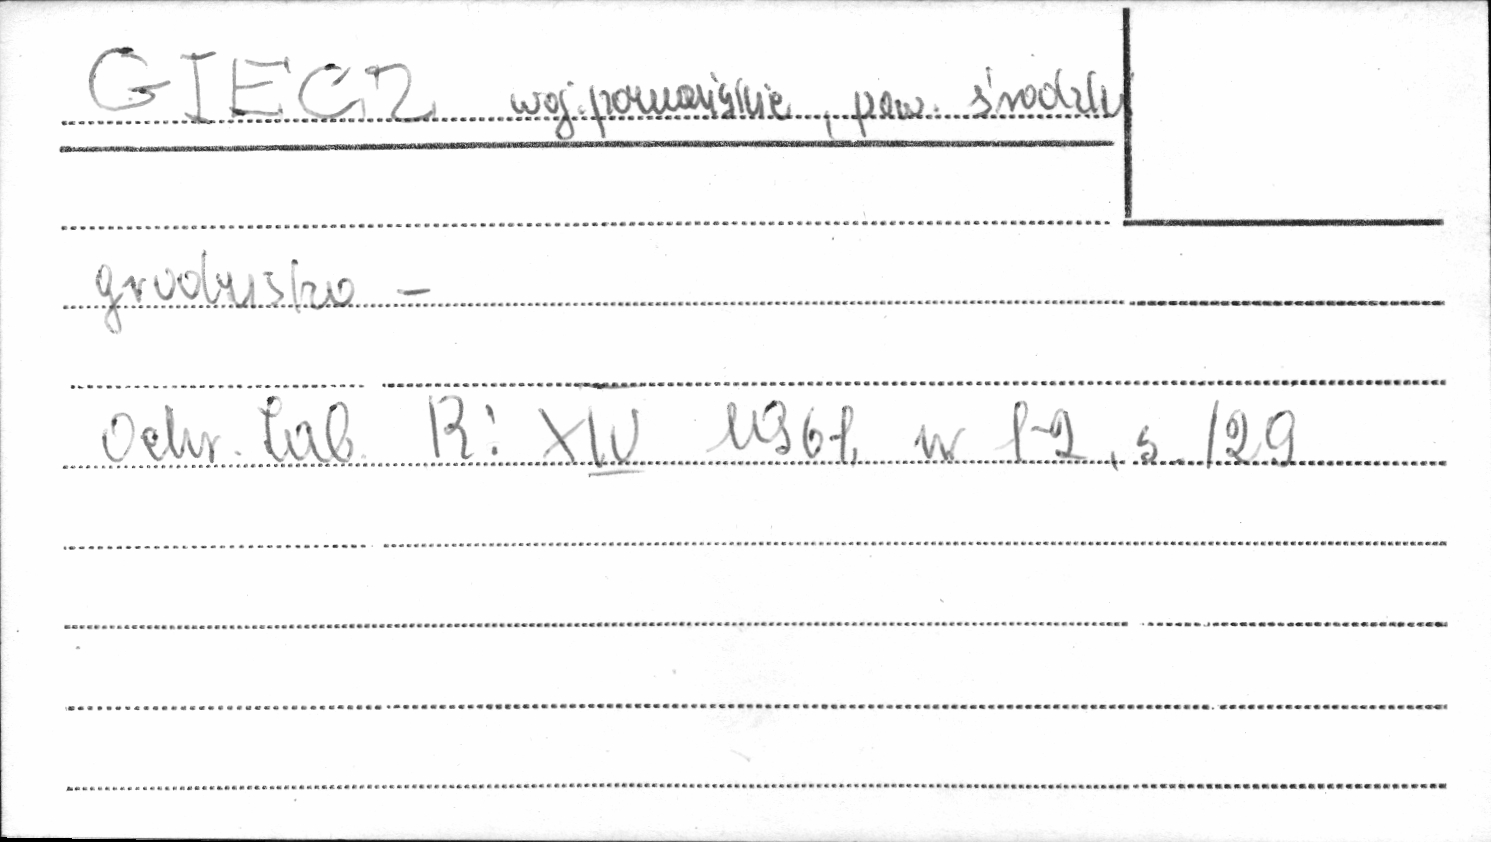 GIECZ woj. poznańskie, pow. średzki
grodzisko –
Ochr. Zab. R: XIV 1961, nr 1-2, s. 129